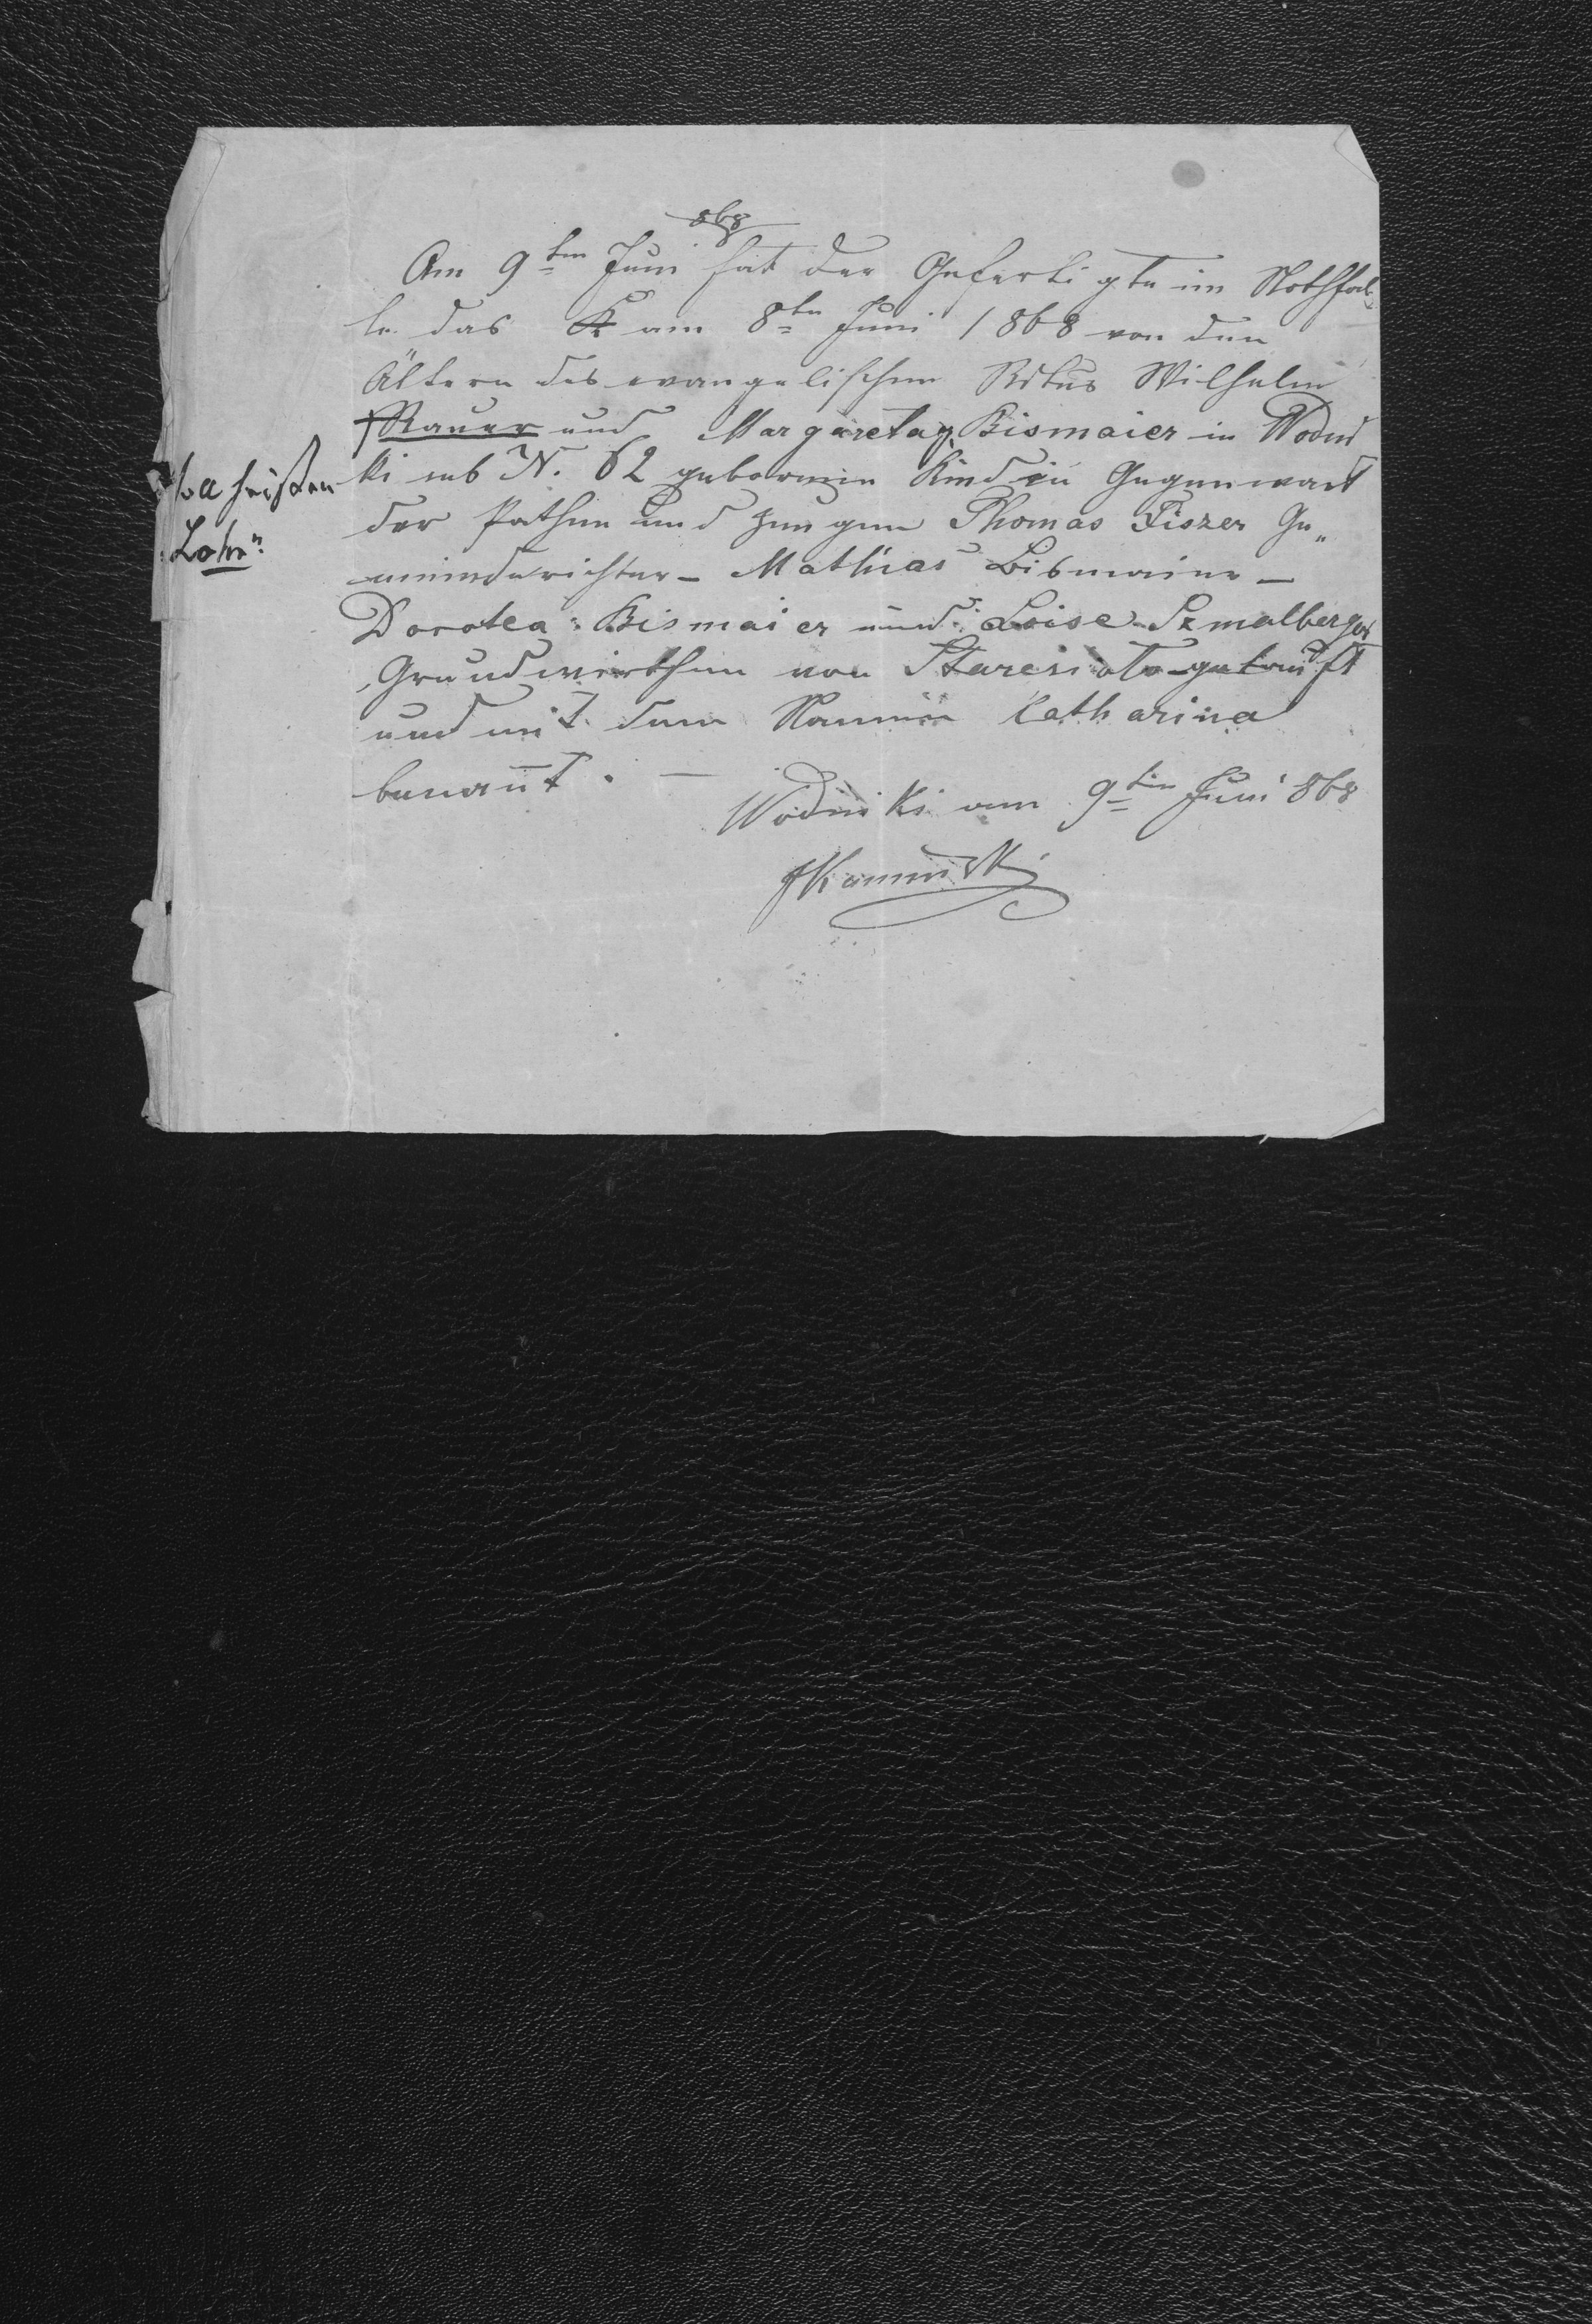 868
Am 9ten Juni hat der Gefertigte im Nothfal,
le das K am 8ten Juni 1868 von den
Ältern des evangelischen Ritus Wilhelm
Mauer und Margareta Bismaier in Wodni
ki sub N. 62 geborene Kind in Gegenwart
soll heißen
„Lohr“
der Pathen und Zeugen Thomas Fiszer Ge„
meinderichter – Mathias Bismaier –
Dorotea Bismaier und Loise Szmalberger
Grundwirthen von Staresioło getauft
und mit dem Namen Catharina
benant. –
Wodniki am 9ten Juni 868